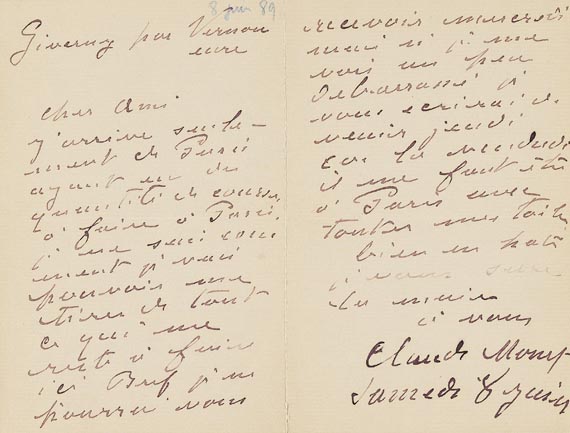 8 juin 89
Giverny par Vernon
eure
cher Ami
j'arrive seule-
ment de Paris
ayant eu des
quantité de courses
à faire à Paris,
je ne sais com
ment je vais
pouvoir me
tirer de tout
ce qui me
reste à faire
ici Bref je ne
pourrai vous
recevoir mercredi
mais si je me
vois un peu
débarrassé je
vous écrirai de
venir jeudi
car le vendredi
il me faut être
à Paris avec
toutes mes toiles
bien en hâte
je vous serre
la main
à vous
Claude Monet
Samedi 8 juin